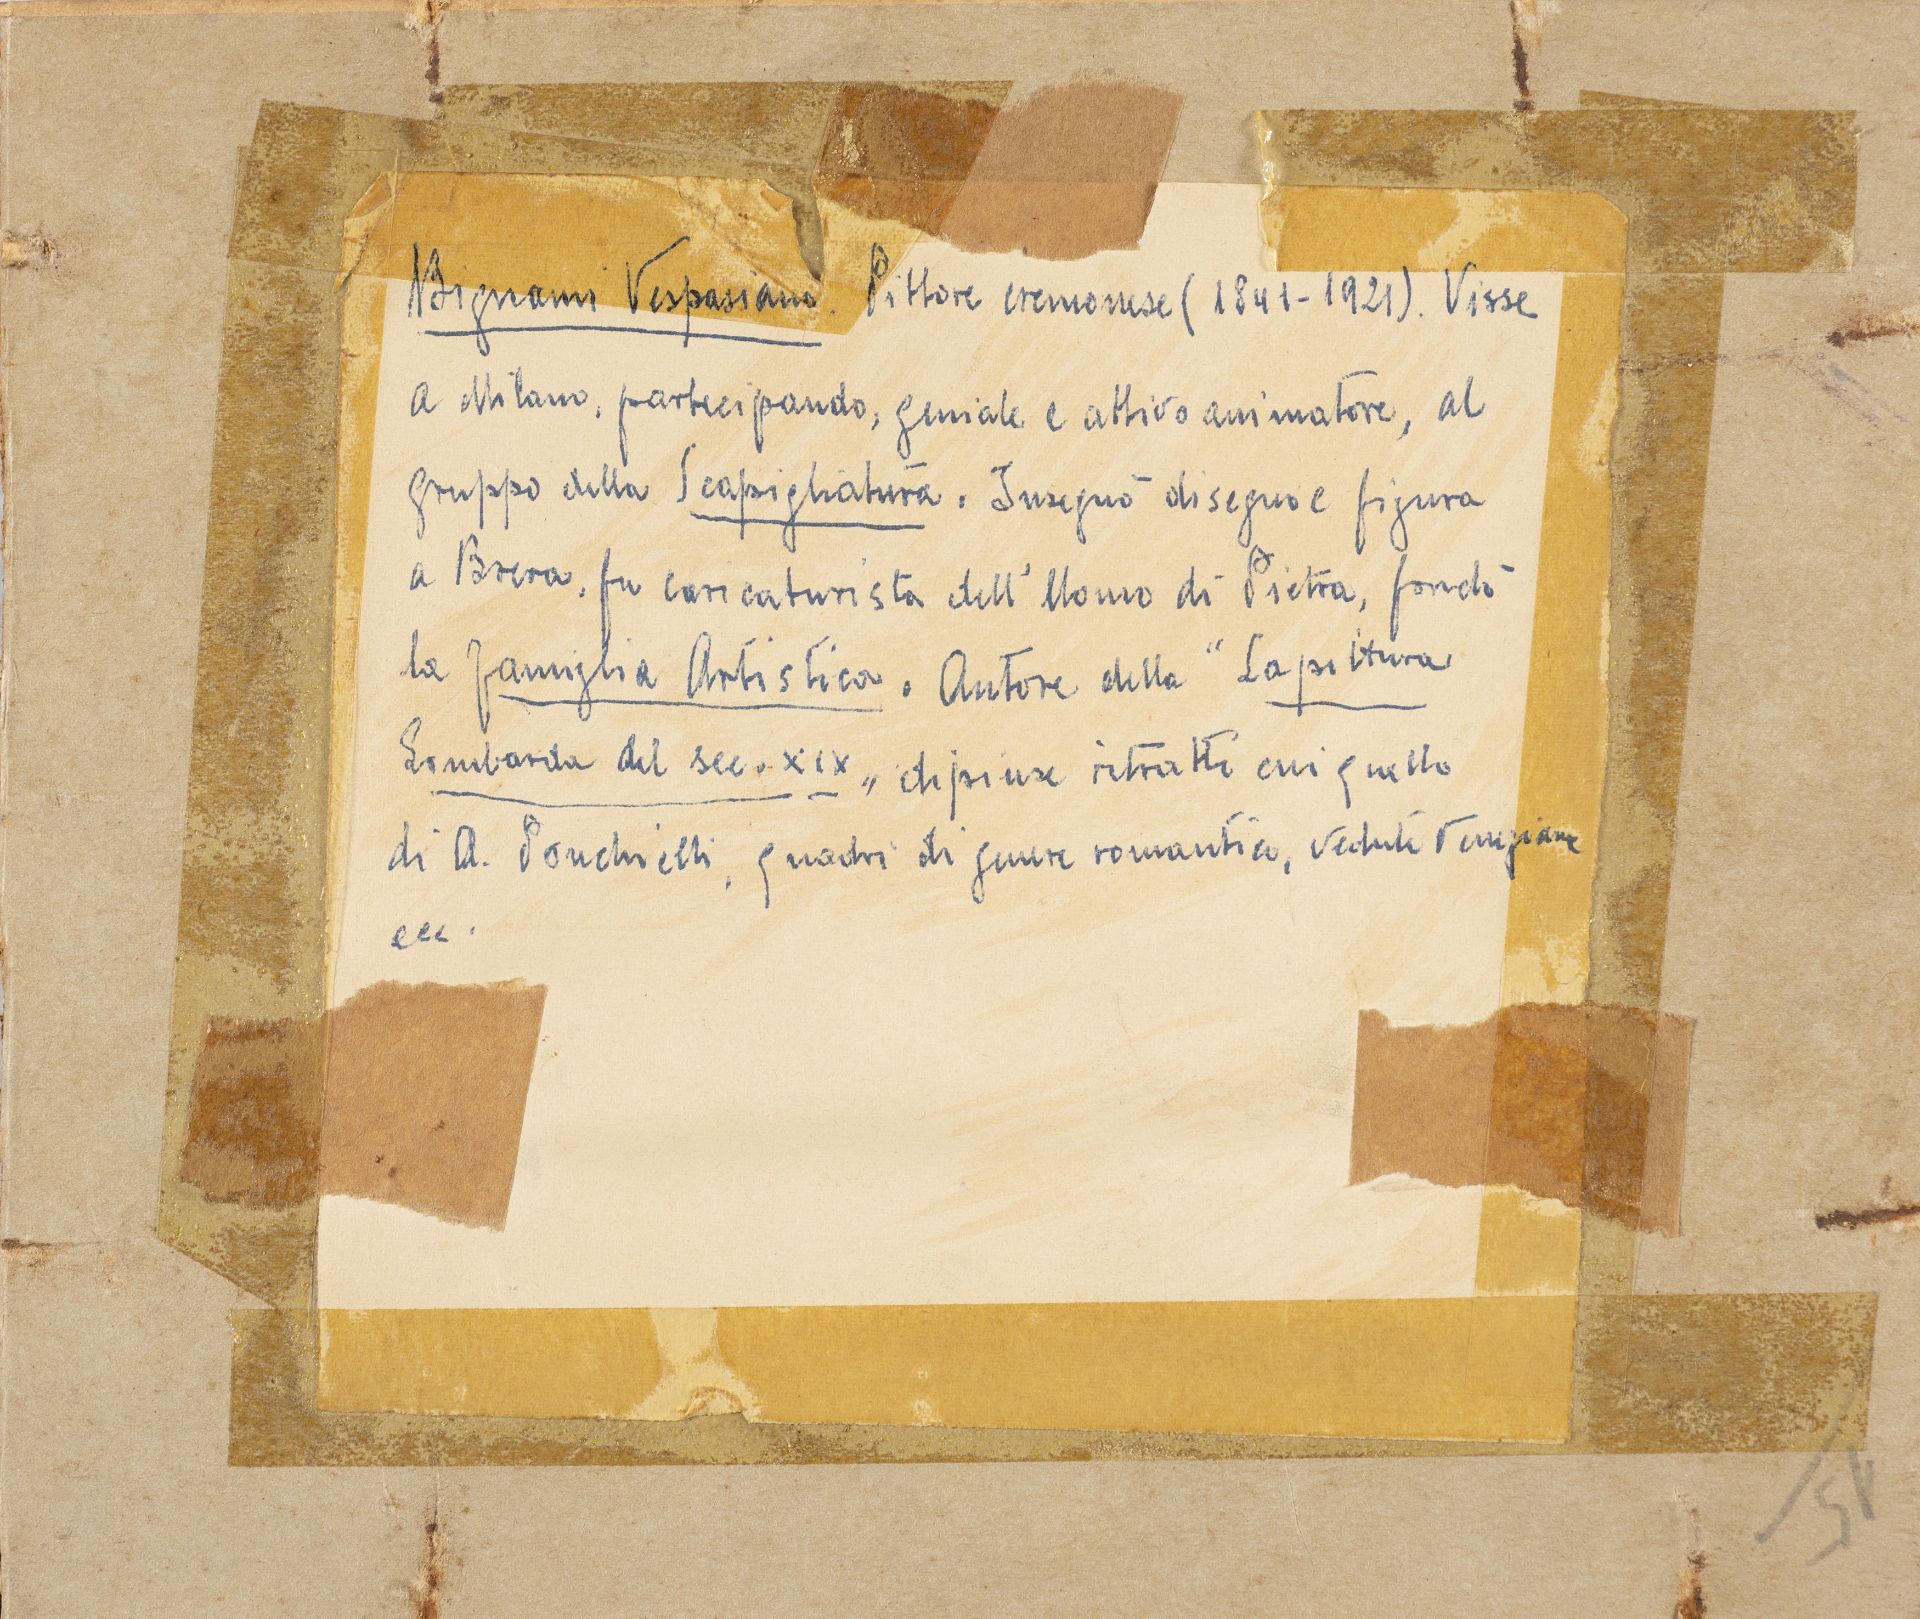 Bignami Vespasiano. Pittore cremonese (1841-1921). Visse
a Milano, partecipando, geniale e attivo animatore, al
gruppo della Scapigliatura. Insegnò disegno e figura
a Brera, fu caricaturista dell'Uomo di Pietra, fondò
la famiglia Artistica. Autore della "La pittura
Lombarda del sec. XIX" dipinse ritratti cui quello
di A. Ponchielli, quadri di genere romantico, vedute Veneziane
ecc.